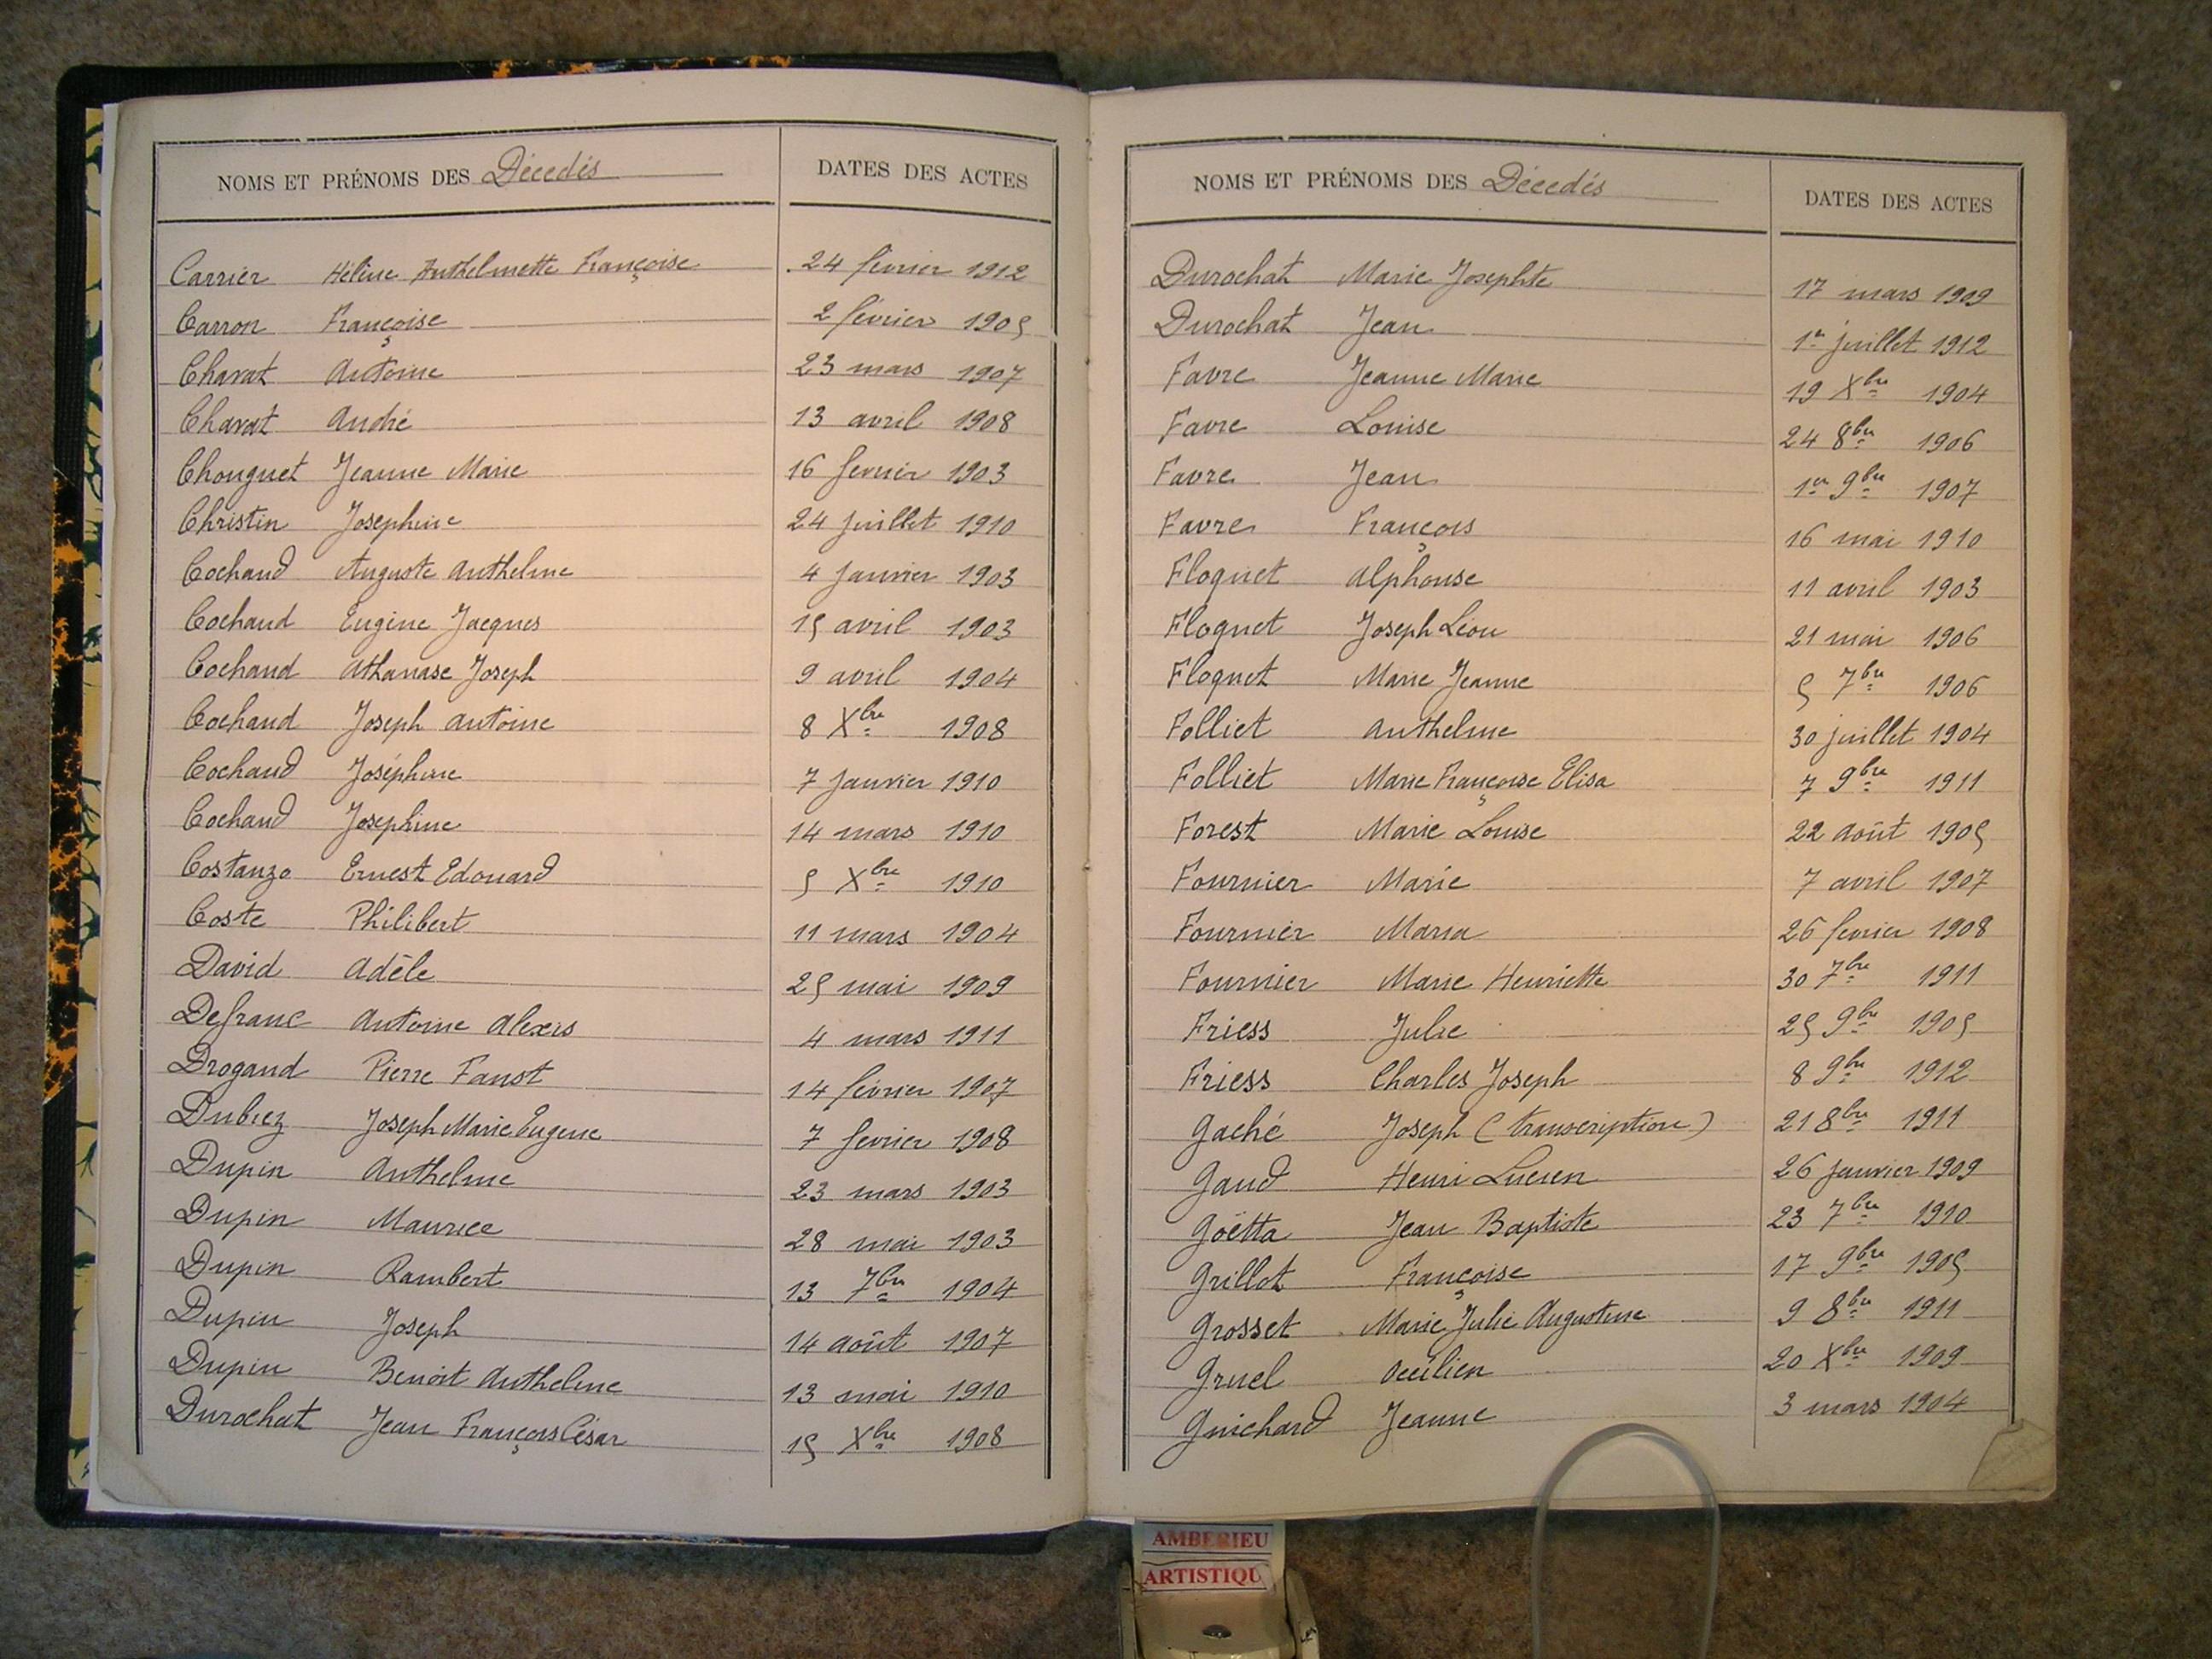 NOMS ET PRÉNOMS DES Décedés DATES DES ACTES
Carrier Hélène Anthelmette Françoise 24 février 1912
Carron Françoise 2 février 1905
Chavat Antoine 23 mars 1907
Chavat André 13 avril 1908
Chouguet Jeanne Marie 16 fevrier 1903
Christin Josephine 24 juillet 1910
Cochand Auguste Anthelme 4 janvier 1903
Cochand Eugène Jacques 15 avril 1903
Cochand Athanase Joseph 9 avril 1904
Cochand Joseph Antoine 8 Xbre 1908
Cochand Joséphine 7 janvier 1910
Cochand Josephine 14 mars 1910
Costanzo Ernest Edouard 5 Xbre 1910
Coste Philibert 11 mars 1904
David Adèle 25 mai 1909
Defranc Antoine Alexis 4 mars 1911
Drogand Pierre Faust 14 février 1907
Dubiez Joseph Marie Eugene 7 fevrier 1908
Dupin Anthelme 23 mars 1903
Dupin Maurice 28 mai 1903
Dupin Rambert 13 7bre 1904
Dupin Joseph 14 août 1907
Dupin Benoit Anthelme 13 mai 1910
Durochat Jean François César 15 Xbre 1908
NOMS ET PRÉNOMS DES Décedés DATES DES ACTES
Durochat Marie Josephte 17 mars 1909
Durochat Jean 1er juillet 1912
Favre Jeanne Marie 19 Xbre 1904
Favre Louise 24 8bre 1906
Favre Jean 1er 9bre 1907
Favre François 16 mai 1910
Floquet Alphonse 11 avril 1903
Floquet Joseph Léon 21 mai 1906
Floquet Marie Jeanne 5 7bre 1906
Folliet Anthelme 30 juillet 1904
Folliet Marie Françoise Elisa 7 9bre 1911
Forest Marie Louise 22 août 1905
Fournier Marie 7 avril 1907
Fournier Maria 26 fevrier 1908
Fournier Marie Henriette 30 7bre 1911
Friess Julie 25 9bre 1905
Friess Charles Joseph 8 9bre 1912
Gaché Joseph (transcription) 21 8bre 1911
Gaud Henri Lucien 26 janvier 1909
Goëtta Jean Baptiste 23 7bre 1910
Grillot Françoise 17 9bre 1905
Grosset Marie Julie Augustine 9 8bre 1911
Gruel Océilien 20 Xbre 1909
Guichard Jeanne 3 mars 1904
AMBERIEU
ARTISTIQU